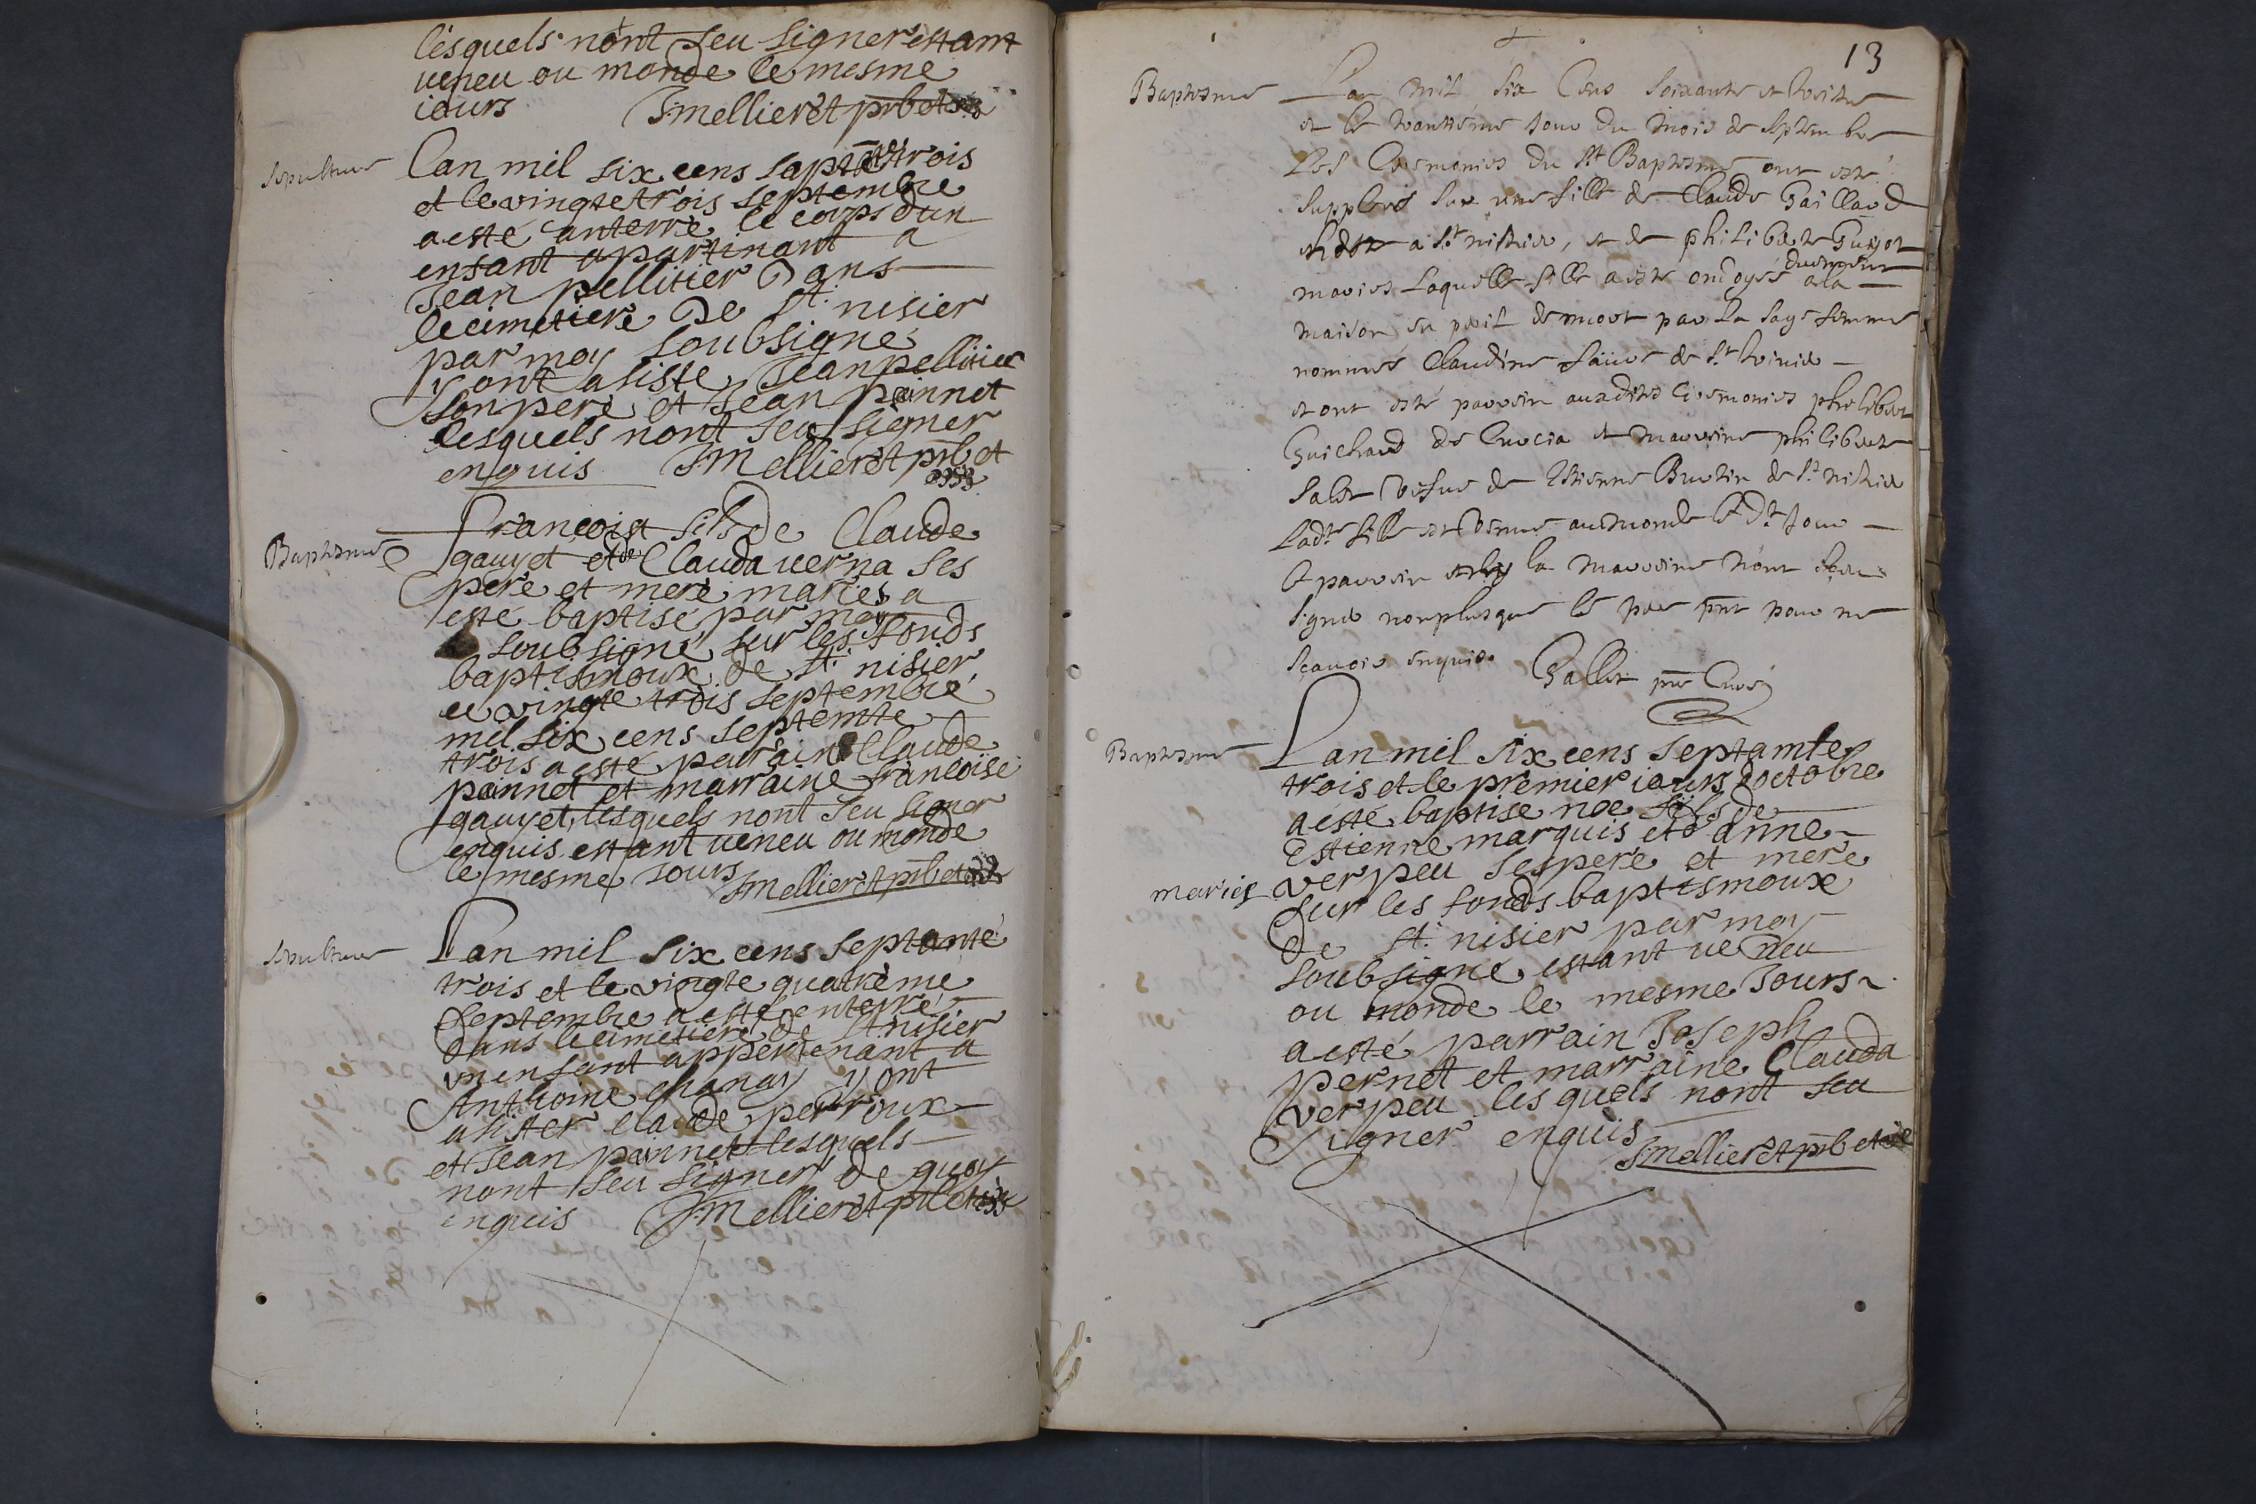 lesquels nont seu signer estant
veneu ou monde le mesme
iours J: mellieret pnb et
Sepulture
Lan mil six cens sapte trois
et le vingte trois septembre
a esté anterré le corps dun
ensant apartinant a
Jean pellitier Dans
le cimetiere De st. nisier
par moy soubsigné
y ont asisté Jean pellitier
son pere et Jean painnet
lesquels nont seu signer
enquis J: Mellieret pnb et
Baptesme
francois fils de Claude
gauyet et de Clauda verna ses
pere et mere mariés a
esté baptisé par moy
soubsigné sur les fonds
baptismoux de st. nisier
le vingte trois septembre
mil six cens septemte
trois a esté parrain Claude
painnet et marraine francoise
gauyet lesquels nont seu signer
enquis estant veneu ou monde
le mesme Jours J: mellieret pnb et
Sepulture
Lan mil six cens septante
trois et le vingte quatrème
septembre a esté enterré
dans le cimetiere de st nisier
un ensant appertenant a
Anthoine chanay y ont
asister claude perroux
et Jean painnet lesquels
nont seu signer de quoy
enquis J: Mellieret pnb et
13
Baptesme
Lan mil six Cens soixante et treize
et le trantiéme Jour du mois de septembre
Les Ceremonies du st Baptesme ont esté
supplees sur une fille de Claude Gaillard
a st nisier, et de philiberte Guyot
maries Laquelle fille a esté ondoyée a la
maison en peril de mort par La sage femme
nommee Claudine de st trivier
et ont esté parrein auxdites Ceremonies philibert
Guichard de Curcia et marreine philiberte
vefve de Estienne Buttin de st nisier
Ladte fille est venue au monde le dt Jour
Le parrein et la marreine nont sceu
signer non plus que le pere pnt pour ne
scavoir enquis. Gallet pre Curé
Baptesme
Lan mil six cens septamte
trois et le premier iours doctobre
a esté baptise noe fils de
Estienne marquis et d'anne
verpeu ses pere et mere
mariés
sur les fonds baptismoux
de st. nisier par moy
soubsigné estant veneu
ou monde le mesme Jours
a esté parrain Joseph
pernet et marraine Clauda
verpeu lesquels nont seu
signer enquis
J: mellieret pnb et